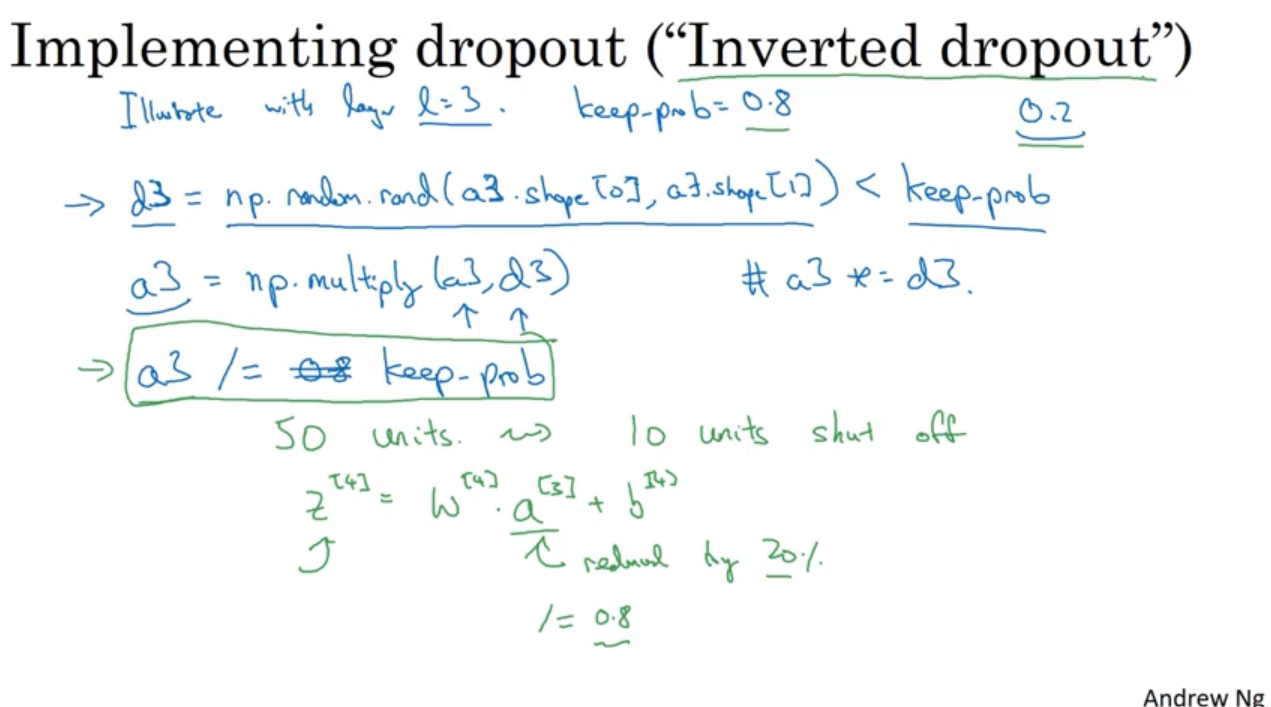 Implementing dropout (“Inverted dropout”)
Illustrate with layer l=3. keep-prob= 0.8 0.2
→ d3 = np.random.rand(a3.shape[0], a3.shape[1]) < keep-prob
a3 = np.multiply(a3, d3) # a3 *= d3.
↑ ↑
→ a3 /= 0.8 keep-prob
50 units. ⇝ 10 units shut off
z^[4] = W^[4] · a^[3] + b^[4]
reduced by 20%.
/= 0.8
Andrew Ng